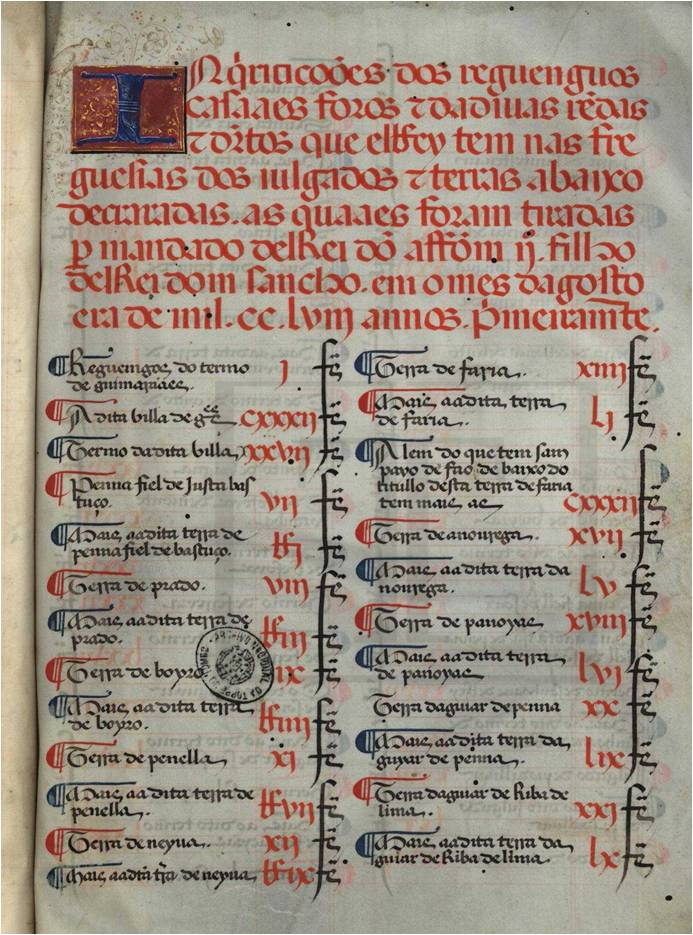 INq̃riticoões dos reguengos
casaaes foros ⁊ dadiuas rẽdas
⁊ dr̃tos que elRey tem nas fre
guesias dos iulgados ⁊ terras abaixo
decraradas. as quaaes foram tiradas
ꝑ mandado delRei dõ affõm ij. filho
delRei dom sancho. em o mes dagosto
era de mil. cc. lviij annos. Pimeiramẽte.
Reguengos do termo
de guimaraães. j fs̃
A dita villa de gr̃es cxxxij fs̃
Termo da dita villa xxvij fs̃
Penna fiel de Justa bas
tuço. vij fs̃
Mais aa dita terra de
penna fiel de bastuço. fs̃
Terra de prado. viij fs̃
Mais aa dita terra de
prado. fs̃
Terra de boyro ix fs̃
Mais aa dita terra
de boyro. fs̃
Terra de penella xj fs̃
Mais aa dita terra de
penella. fs̃
Terra de neyua. xij fs̃
Mais aa dita tr̃ra de neyua fs̃
Terra de faria. xiiij fs̃
Mais aa dita terra
de faria. lj fs̃
Alem do que tem sam
payo de frio de baixo do
titullo desta terra de faria
tem mais as cxxxij fs̃
Terra de anourega. xvij fs̃
Mais aa dita terra da
nourega. lv fs̃
Terra de panoyas xviij fs̃
Mais aa dita terra
de panoyas lvj fs̃
Terra daguiar de penna xx fs̃
Mais aa dita terra da
guyar de penna. lix fs̃
Terra daguiar de Riba de
lima. xxj fs̃
Mais aa dita terra da
guiar de Riba de lima. lx fs̃